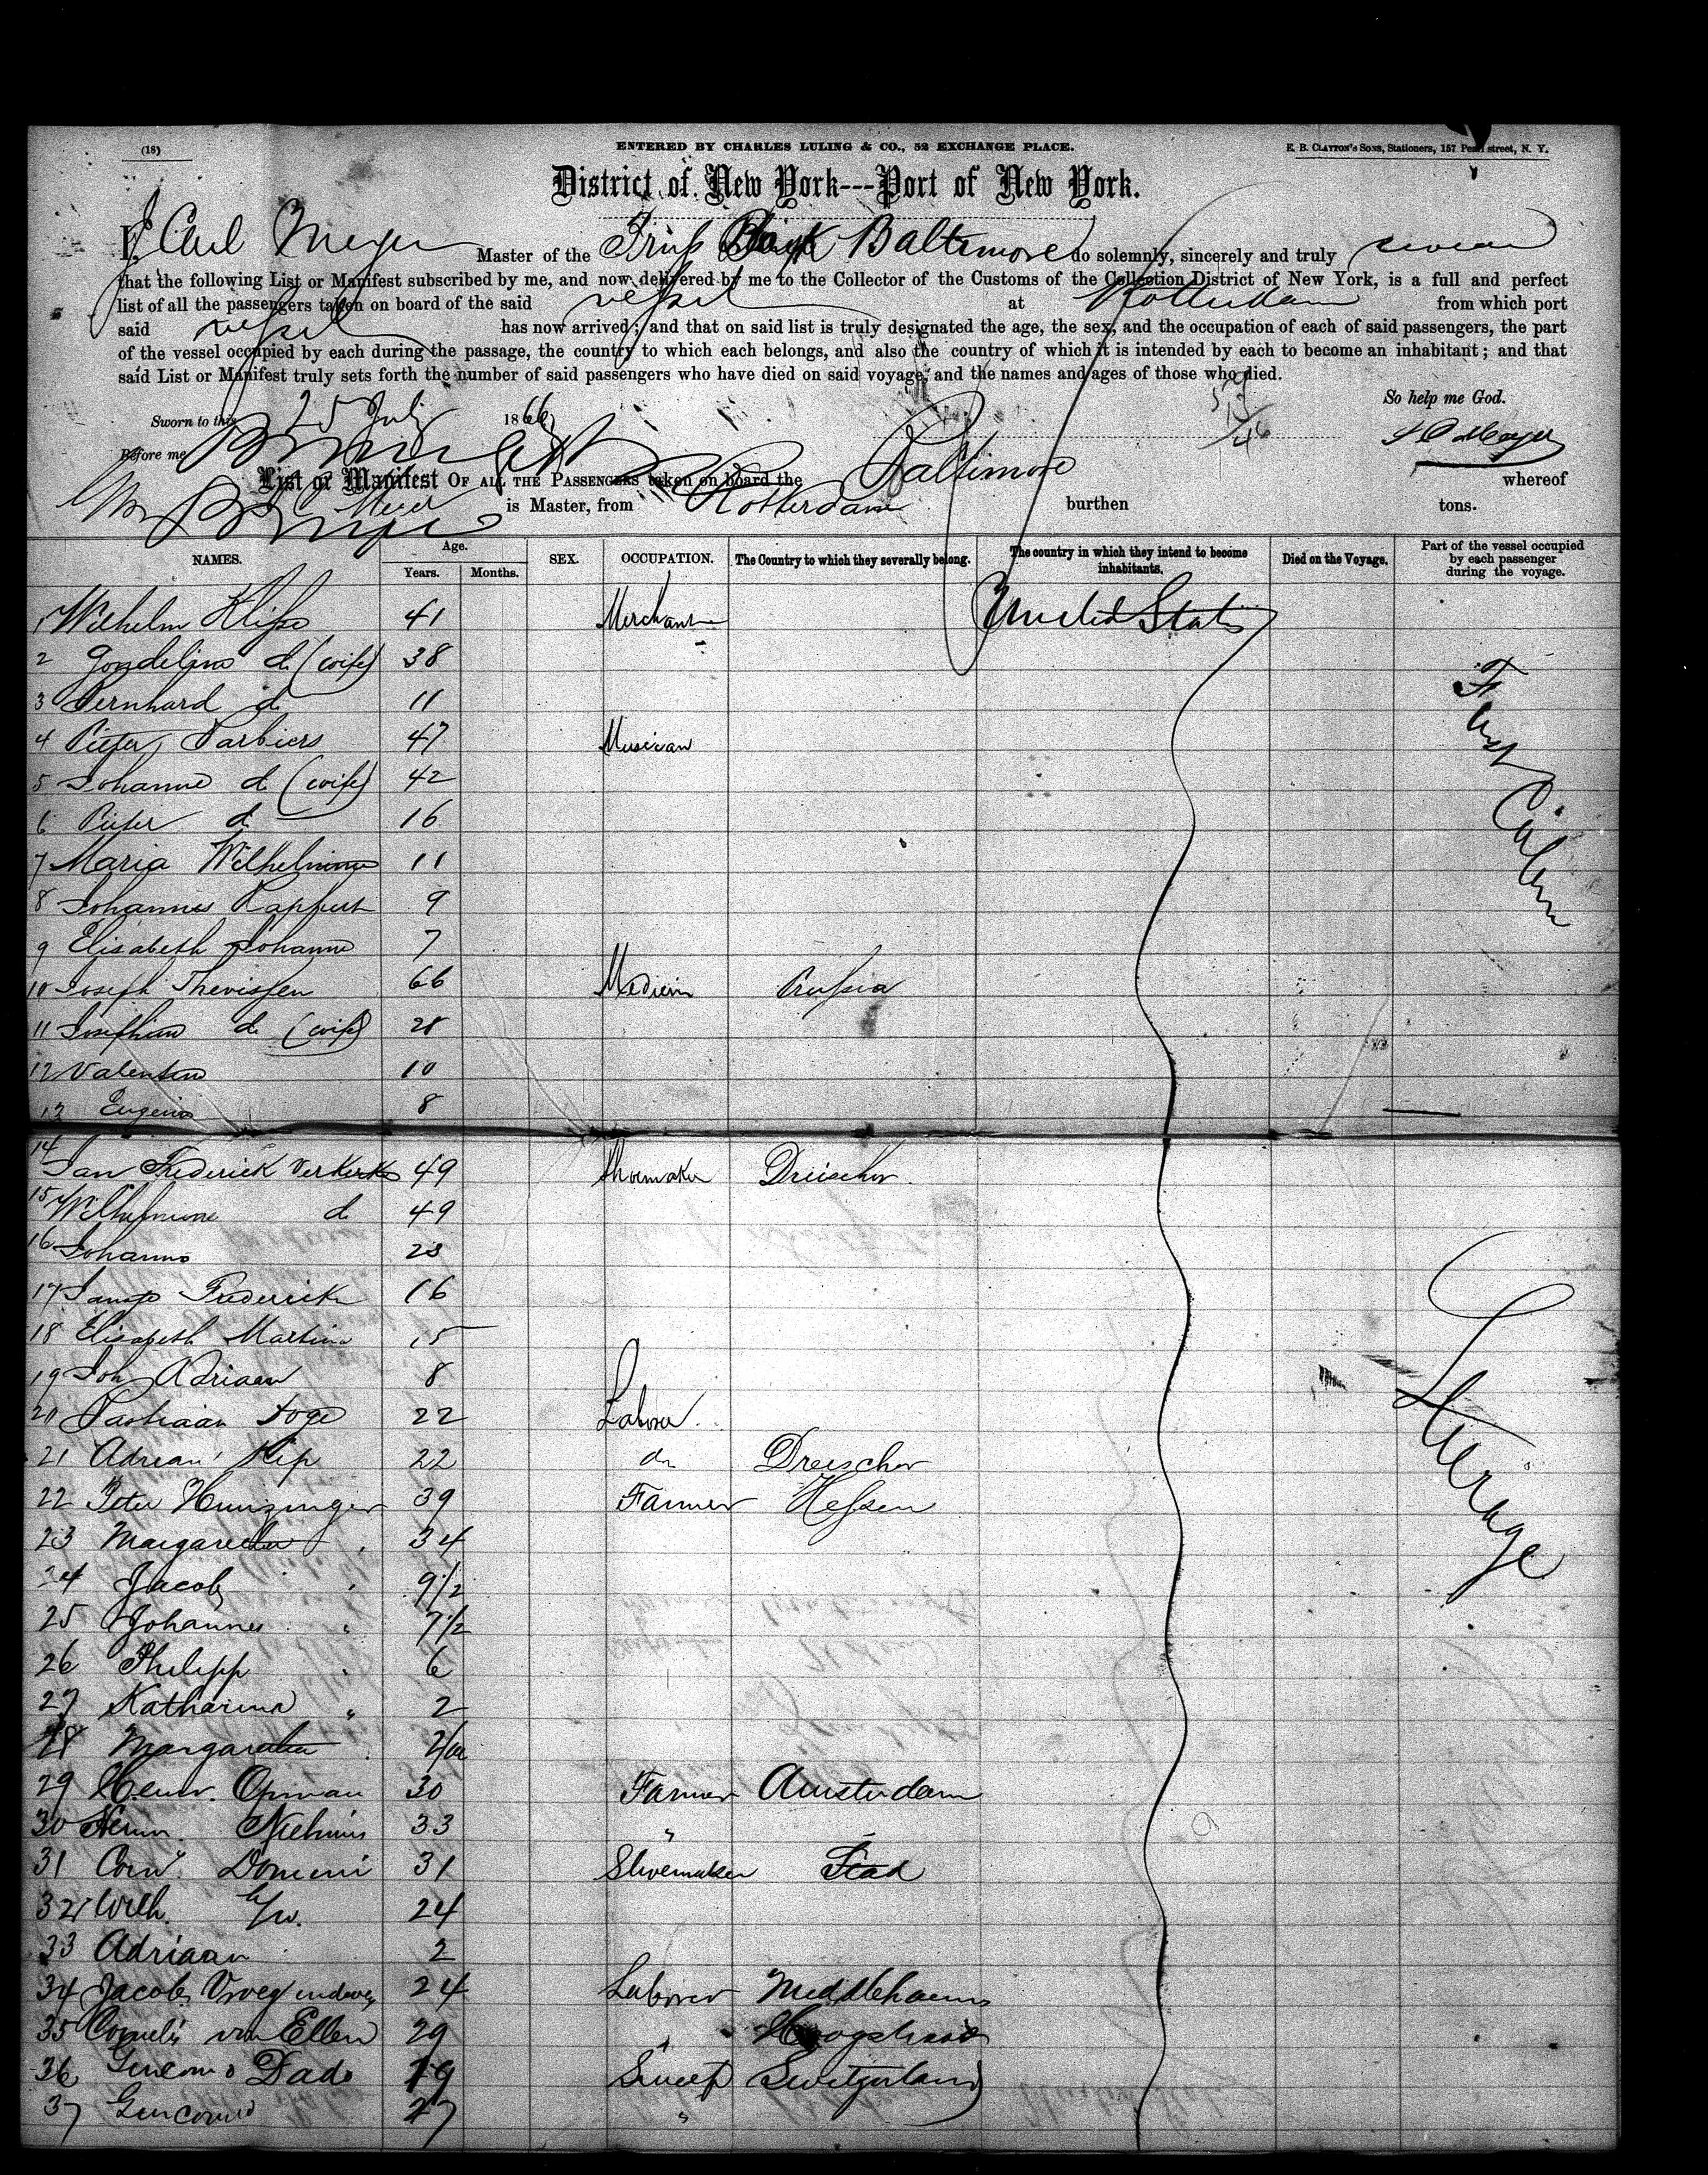 (18)
ENTERED BY CHARLES LULING & CO., 52 EXCHANGE PLACE.
E. B. CLAYTON'S SONS, Stationers, 157 Pearl street, N. Y.
District of New York---Port of New York.
I, Carl Meyer Master of the Baltimore do solemnly, sincerely and truly swear
that the following List or Manifest subscribed by me, and now delivered by me to the Collector of the Customs of the Collection District of New York, is a full and perfect
list of all the passengers taken on board of the said vessel at Rotterdam from which port
said vessel has now arrived; and that on said list is truly designated the age, the sex, and the occupation of each of said passengers, the part
of the vessel occupied by each during the passage, the country to which each belongs, and also the country of which it is intended by each to become an inhabitant; and that
said List or Manifest truly sets forth the number of said passengers who have died on said voyage, and the names and ages of those who died.
So help me God.
Sworn to this 25 July 1866
Before me
List or Manifest OF ALL THE PASSENGERS taken on board the Baltimore whereof
Meyer is Master, from Rotterdam burthen tons.
NAMES. Age. Years. Months. SEX. OCCUPATION. The Country to which they severally belong. The country in which they intend to become inhabitants. Died on the Voyage. Part of the vessel occupied by each passenger during the voyage.
1 Wilhelm 41 Merchant United States
2 d (wife) 38
3 Bernhard d 11
First Cabin
4 Pieter Barbiers 47 Musician
5 Johanna d (wife) 42
6 Pieter d 16
7 Maria Wilhelmina 11
8 Johannes 9
9 Elisabeth Johanna 7
10 Joseph Thevissen 66 Prussia
11 Josephina d (wife) 28
12 Valentin 10
13 Eugenia 8
14 Jan Frederick Verkerke 49 Shoemaker Dreischor
15 Wilhelmine d 49
16 Johanna 23
17 Frederick 16
18 Elisabeth Martina 15
19 Joh Adriaan 8
Steerage
20 22 Labour
21 Adriaan Kip 22 do Dreischor
22 Peter Hunzinger 39 Farmer Hessen
23 Margaretha " 34
24 Jacob " 9 1/2
25 Johannes " 7 1/2
26 Philipp " 6
27 Katharina " 2
28 Margaretha "
29 Henr. Opman 30 Farmer Amsterdam
30 Herm. 33 "
31 Corn. 31 Shoemaker Stad
32 Wilh. 24
33 Adriaan 2
34 Jacob 24 Laborer Middelharnis
35 Cornelis van Ellen 29 "
36 Dado 19 Sweep Switzerland
37 27 "